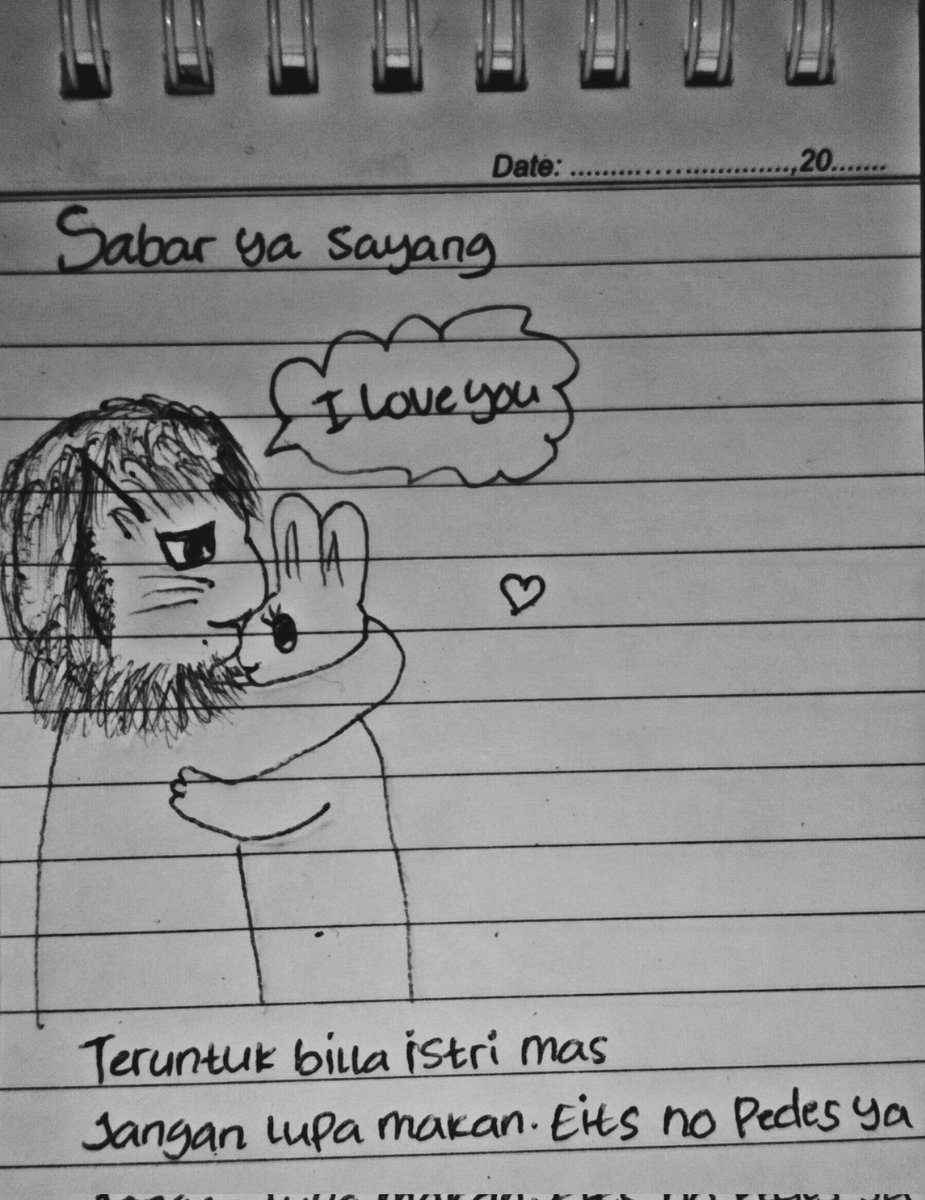 Date: ............................,20.......
Sabar ya sayang
I love you
Teruntuk billa istri mas
Jangan lupa makan. Eits no Pedes ya